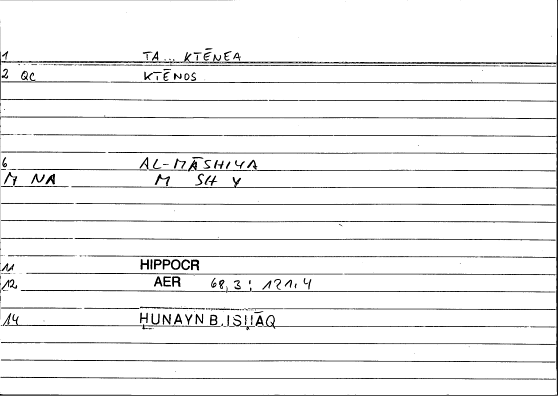 1 TA... KTĒNEA
2 QC KTĒNOS
6 AL-MĀSHIYA
M NA M SH Y
11 HIPPOCR
12 AER 68,3 : 121,4
14 ḪUNAYN B. ISḤĀQ